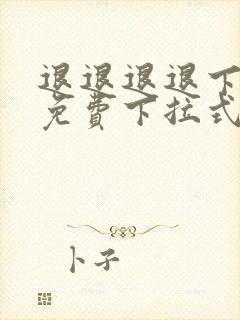 退退退退下
免費下拉式
卜子